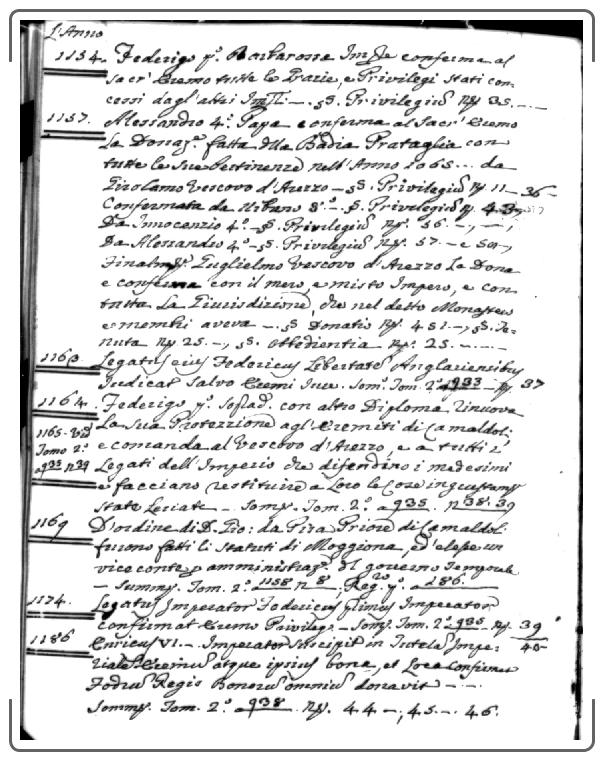 L'Anno
1154. Federigo p.º Barbarossa Imp.re conferma al
Sacr' Eremo tutte le Grazie, e Privilegi stati con-
cessi dagl'altri Imp.ri —. §§. Privilegiū Nº 35. — —
1157. Alessandro 4.º Papa conferma al Sacr' Eremo
La Donaz.e fatta della Badia Prataglia con
tutte le sue pertinenze nell'Anno 1065... da
Girolamo Vescovo d'Arezzo — §§. Privilegiū Nº 11 — 36 —
Confermata da Urbano 3.º —. §. Privilegiū Nº
Da Innocenzio 4.º —§ Privilegiū Nº. 56 —, —,
Da Alessandro 4.º —§. Privilegiū Nº. 57 — e
Finalm.te Guglielmo Vescovo d'Arezzo La Dona
e conferma con il mero, e misto Impero, e con
tutta La Giurisdizione, che nel detto Monastero
e membri aveva —. §§ Donatio Nº. 451 —, §§. Te-
nuta Nº 25. —, §§. Obedientia Nº. 25. — — —
1163 Legatus eius Federicus Libertatē Anglariensibus
Judicat Salvo Eremi Jure. Som. Tom. 2.º 933 — Nº. 37
1164. Federigo p.º Soprad. con altro Diploma rinuova
La Sua Protezzione agl'Eremiti di Camaldol:
1165 — Tomo 2.º a 935 n 39 e comanda al Vescovo d'Arezzo, e a tutti i
Legati dell'Imperio che difendino i medesimi
e facciano restituire a Loro le Cose ingiustam.te
state Levate — Somm. Tom. 2.º a 935. n 38. 39
1169 D'ordine di D. Gio: da Pisa Priore di Camaldol:
furono fatti li Statuti di Moggiona, ed elesse un
vice conte p amministraz.e del governo Temporale
— Summ. Tom. 2.º 1158 n 8. Reg.ro p.º a 286. —
1174. Legatus Imperator Federicus primus Imperator
confirmat Eremo Privileg. — Som. Tom. 2.º 935 Nº. 39
1186 Enricus VI. — Imperator Suscipit in Tutelā Impe- 40
riale Eremū atque ipsius bona, et Loca Confirmat
Fodrū Regis Bonorū omniū donavit — —
Somm. Tom. 2.º a 938. Nº. 44 —, 45. —. 46.